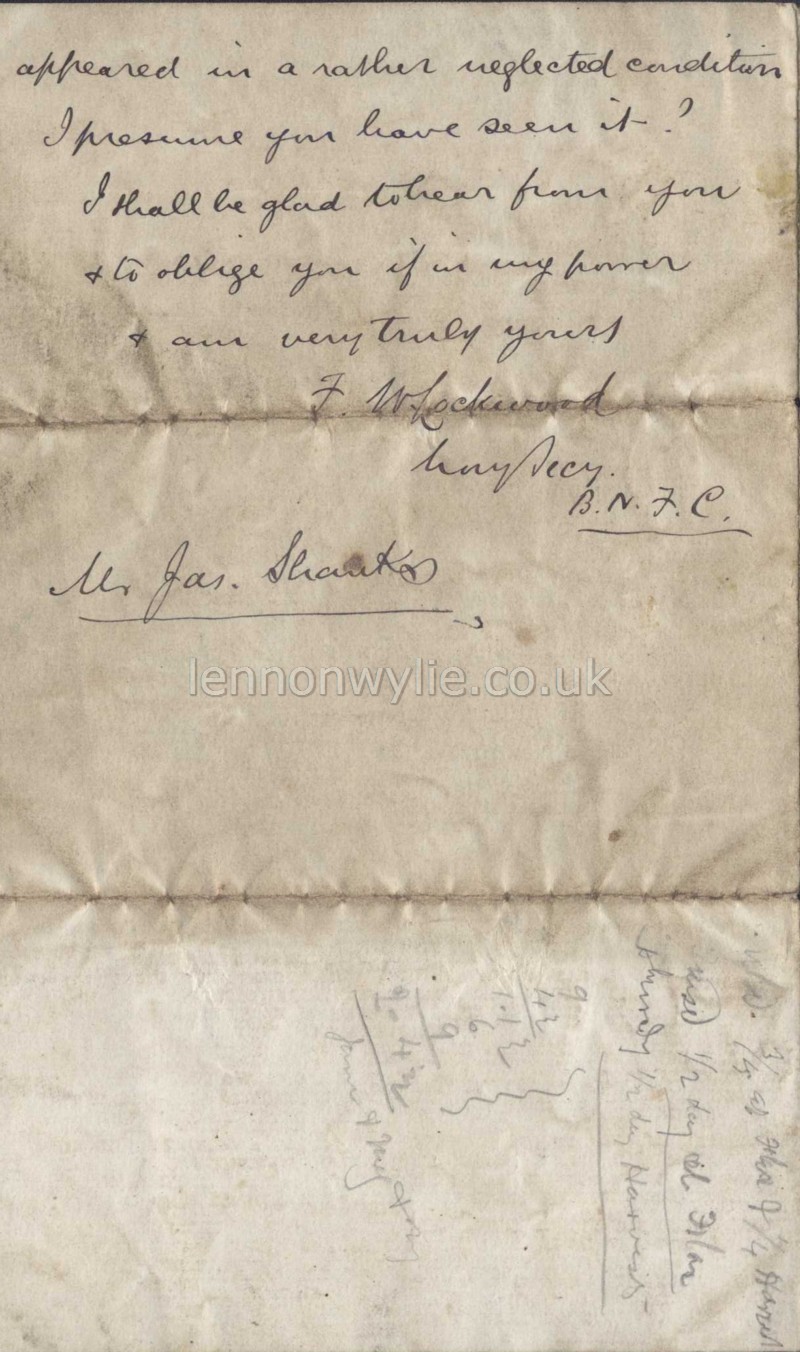 appeared in a rather neglected condition
I presume you have seen it?
I shall be glad to hear from you
& to oblige you if in my power
& am very truly yours
F. W Lockwood
Hony Secy.
B. N. F. C.
Mr Jas. Shanks
lennonwylie.co.uk
1/2 day
1/2 day Harvest
9
6
9